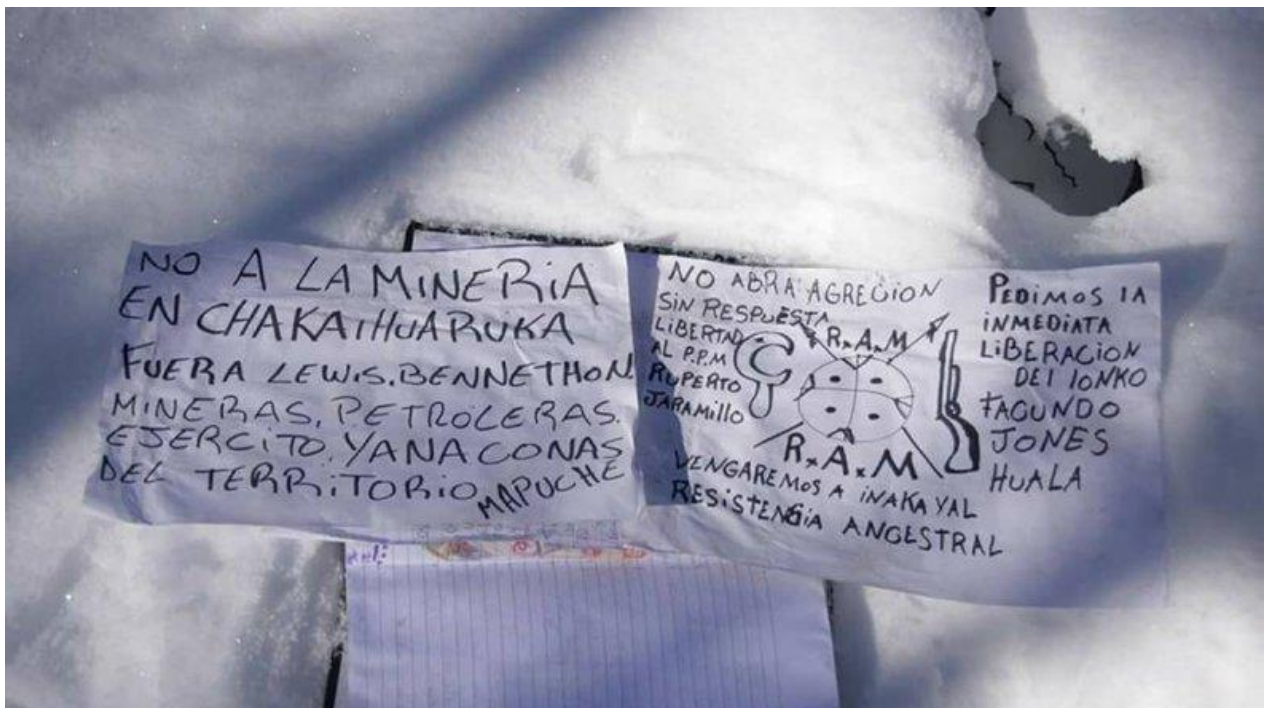 NO A LA MINERiA
EN CHAKAIHUARUKA
FUERA LEWIS. BENNETHON
MINERAS, PETROLERAS.
EJERCITO. YANACONAS
DEL TERRiTORiO MAPUCHE
NO ABRA AGRECION
SIN RESPUESTA
LiBERTAD
AL P.P.M
RUPERTO
JARAMILLO
R.A.M
R.A.M
VENGAREMOS A iNAKAYAL
RESiSTENSiA ANCESTRAL
PEDIMOS lA
iNMEDiATA
LiBERACiON
DEl lONKO
FACUNDO
JONES
HUALA